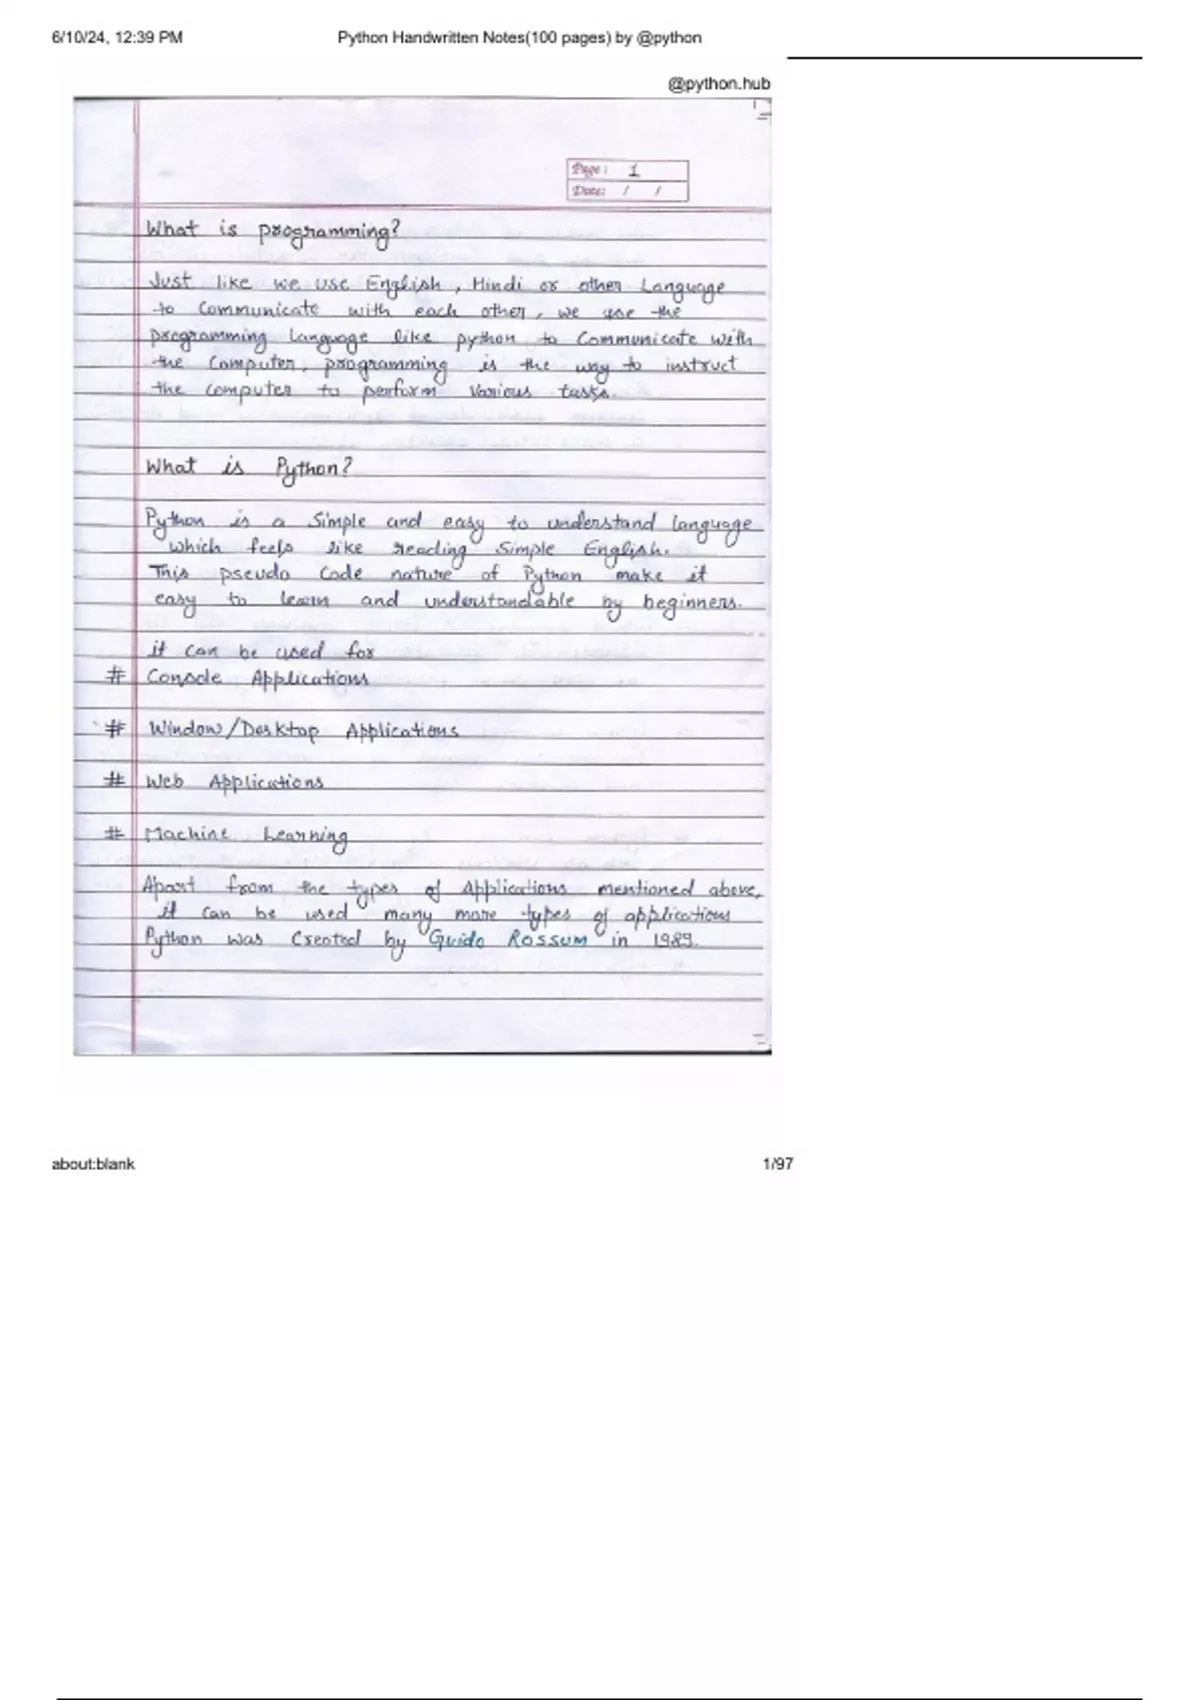 6/10/24, 12:39 PM Python Handwritten Notes(100 pages) by @python
@python.hub
Page: 1
Date: / /
What is programming?
Just like we use English, Hindi or other Language
to Communicate with each other, we use the
programming Language like python to Communicate with
the Computer, programming is the way to instruct
the computer to perform various tasks.
What is Python?
Python is a Simple and easy to understand language
which feels like reading Simple English.
This pseudo Code nature of Python make it
easy to learn and understandable by beginners.
it can be used for
# Console Applications
# Window/Desktop Applications
# Web Applications
# Machine Learning
Apart from the types of Applications mentioned above,
it can be used many more types of applications
Python was Created by Guido Rossum in 1989.
about:blank 1/97